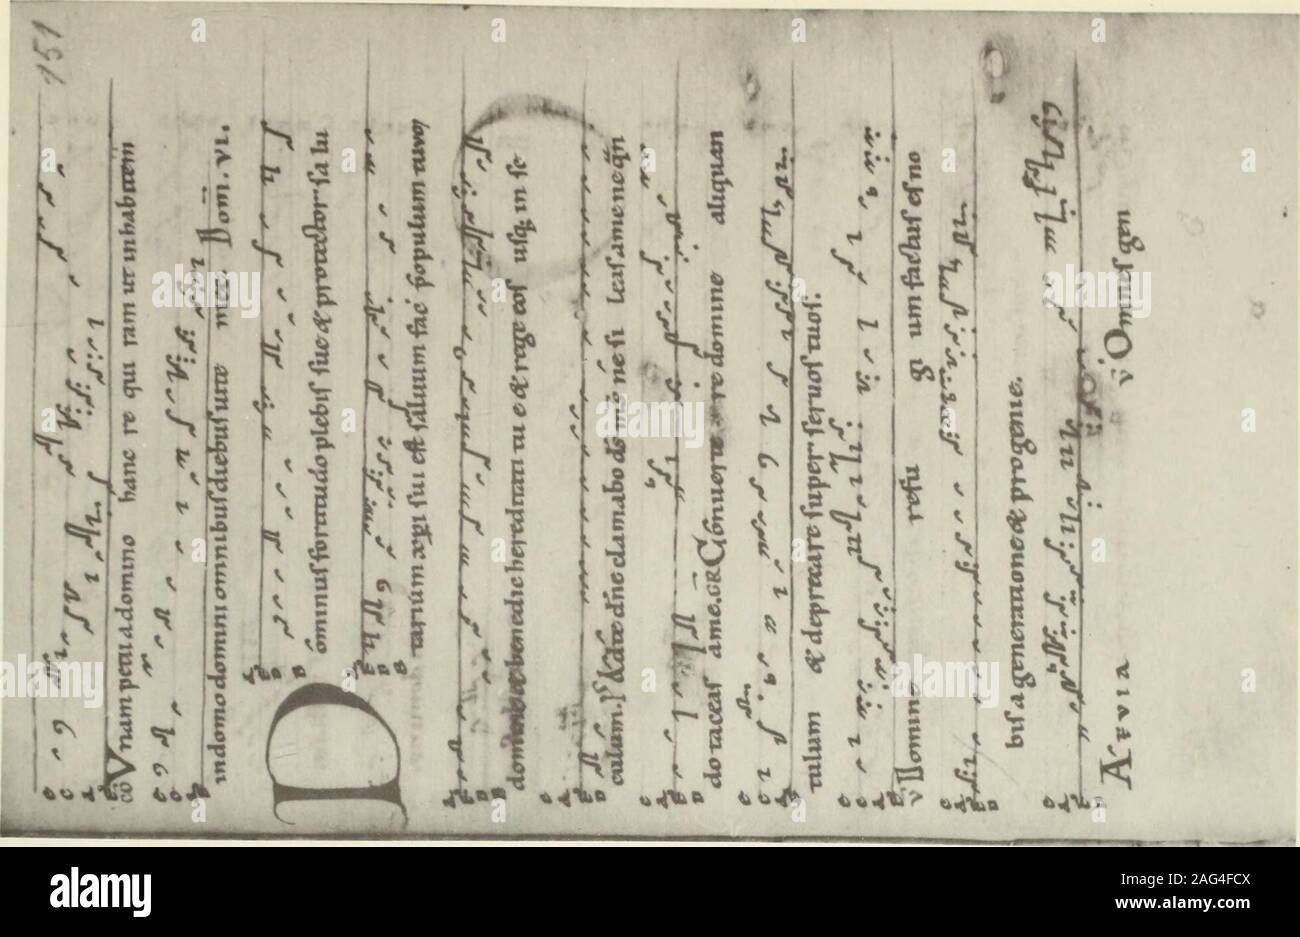 151
co Vnam petii a domino hanc re qui ram ut inhabitem
in domo domini omnibus diebus uitę meę. Dom̄. VI.
Dominus fortitudo plebis suę & protector salu
tarium xp̄i sui est saluum fac populum tuum
domine & benedic hereditati tuę & rege eos usq; in sę
culum. ps Ad te dn̄e clamabo ds ms ne si leas a me ne qn̄
do taceas a me. GR Conuertę re domine aliquan
tulum & deprecare super seruos tuos.
v Domine refu gi um factus es no
bis a generatione & progenie.
AEVIA v Omnes gen
alamy
Image ID: 2AG4FCX
www.alamy.com